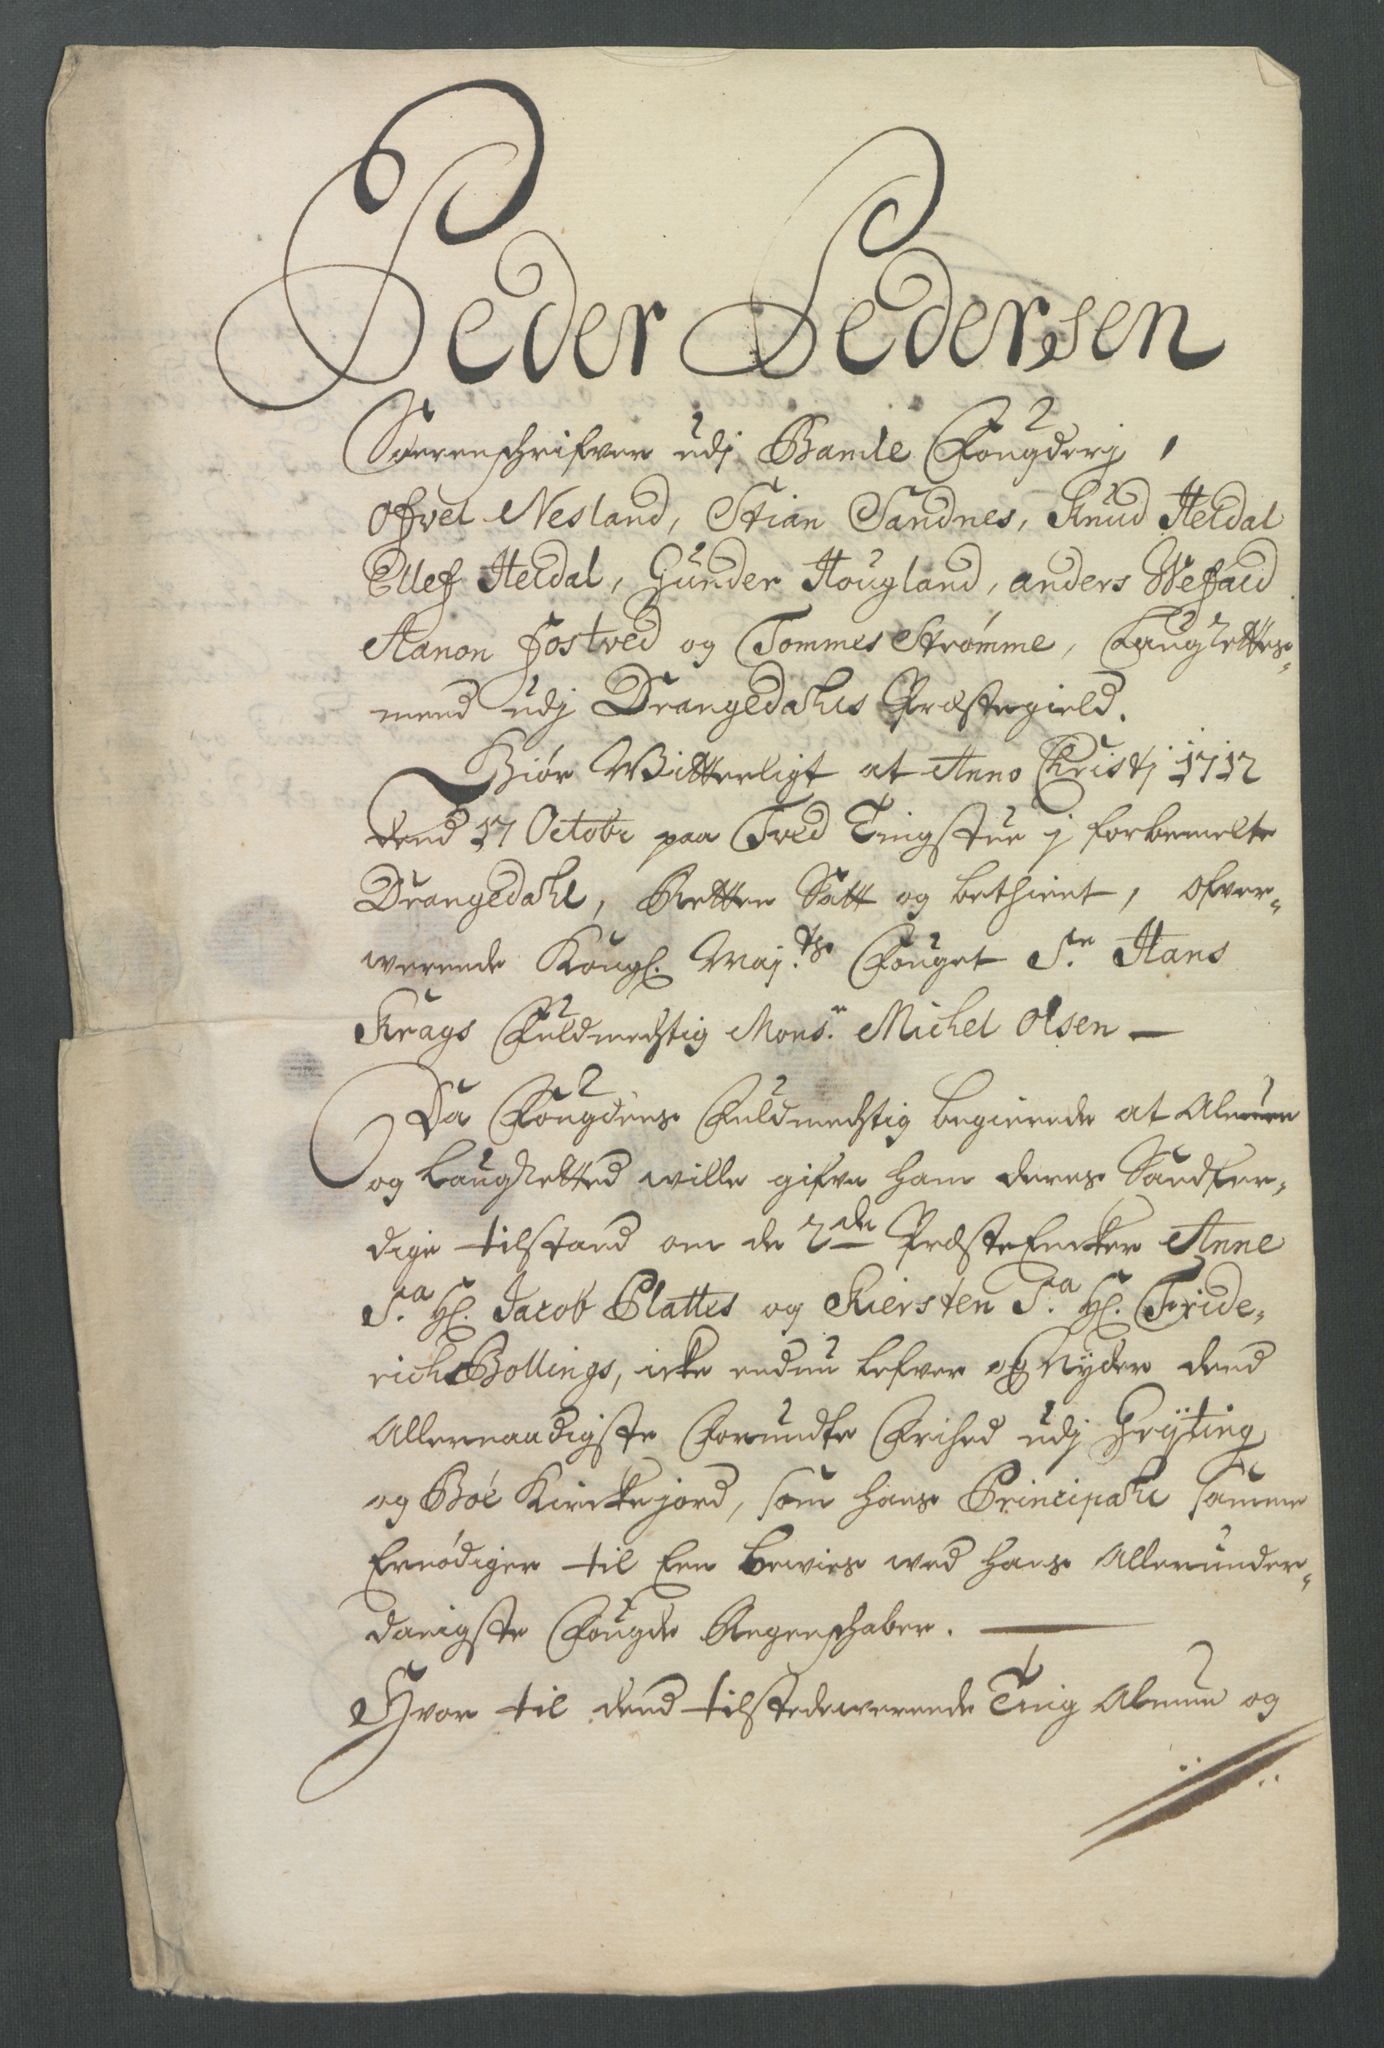 Peder Pedersen
Sorenschrifver udj Bamle Fougderj,
Ofvel Nesland, Stian Sandnes, Knud Heldal
Ellef Heldal, Gunder Hougland, anders Wefald
Aanon Jostved og Tommes Strømme, LaugRettes-
mend udj Drangedahls Præstegield.
Giør Witterligt at Anno Christj 1712
dend 17 Octobr paa Tved Tingstue j forbemelte
Drangedahl, Retten Satt og bethient, ofver-
werende Kongl. Maj.ts Fouget Sr. Hans
Krags Fuldmechtig Monsr. Michel Olsen —
Da Fougdens Fuldmechtig begierede at Almuen
og LaugRetted wille gifve ham deres Sandfer-
dige tilstand om de 2de PræsteEncker Anne
Sa. Hl. Jacob Plattes og Kiersten Sa. Hl. Fride-
rich Bollings, icke endnu lefver og Nyder dend
Allernaadigste Forundte Frihed udj Gryting
og Böe Kirckejord, som hans Principahl samme
Ernödiger til Een bewies wed hans Allerunder-
danigste Fougde Regenschaber. —
Hvor til dend tilstedewerende Ting Almue og